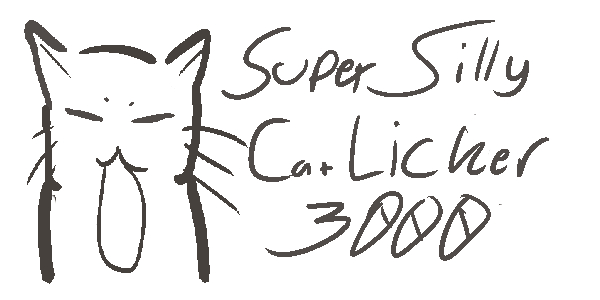 Super Silly
Cat Licker
3000